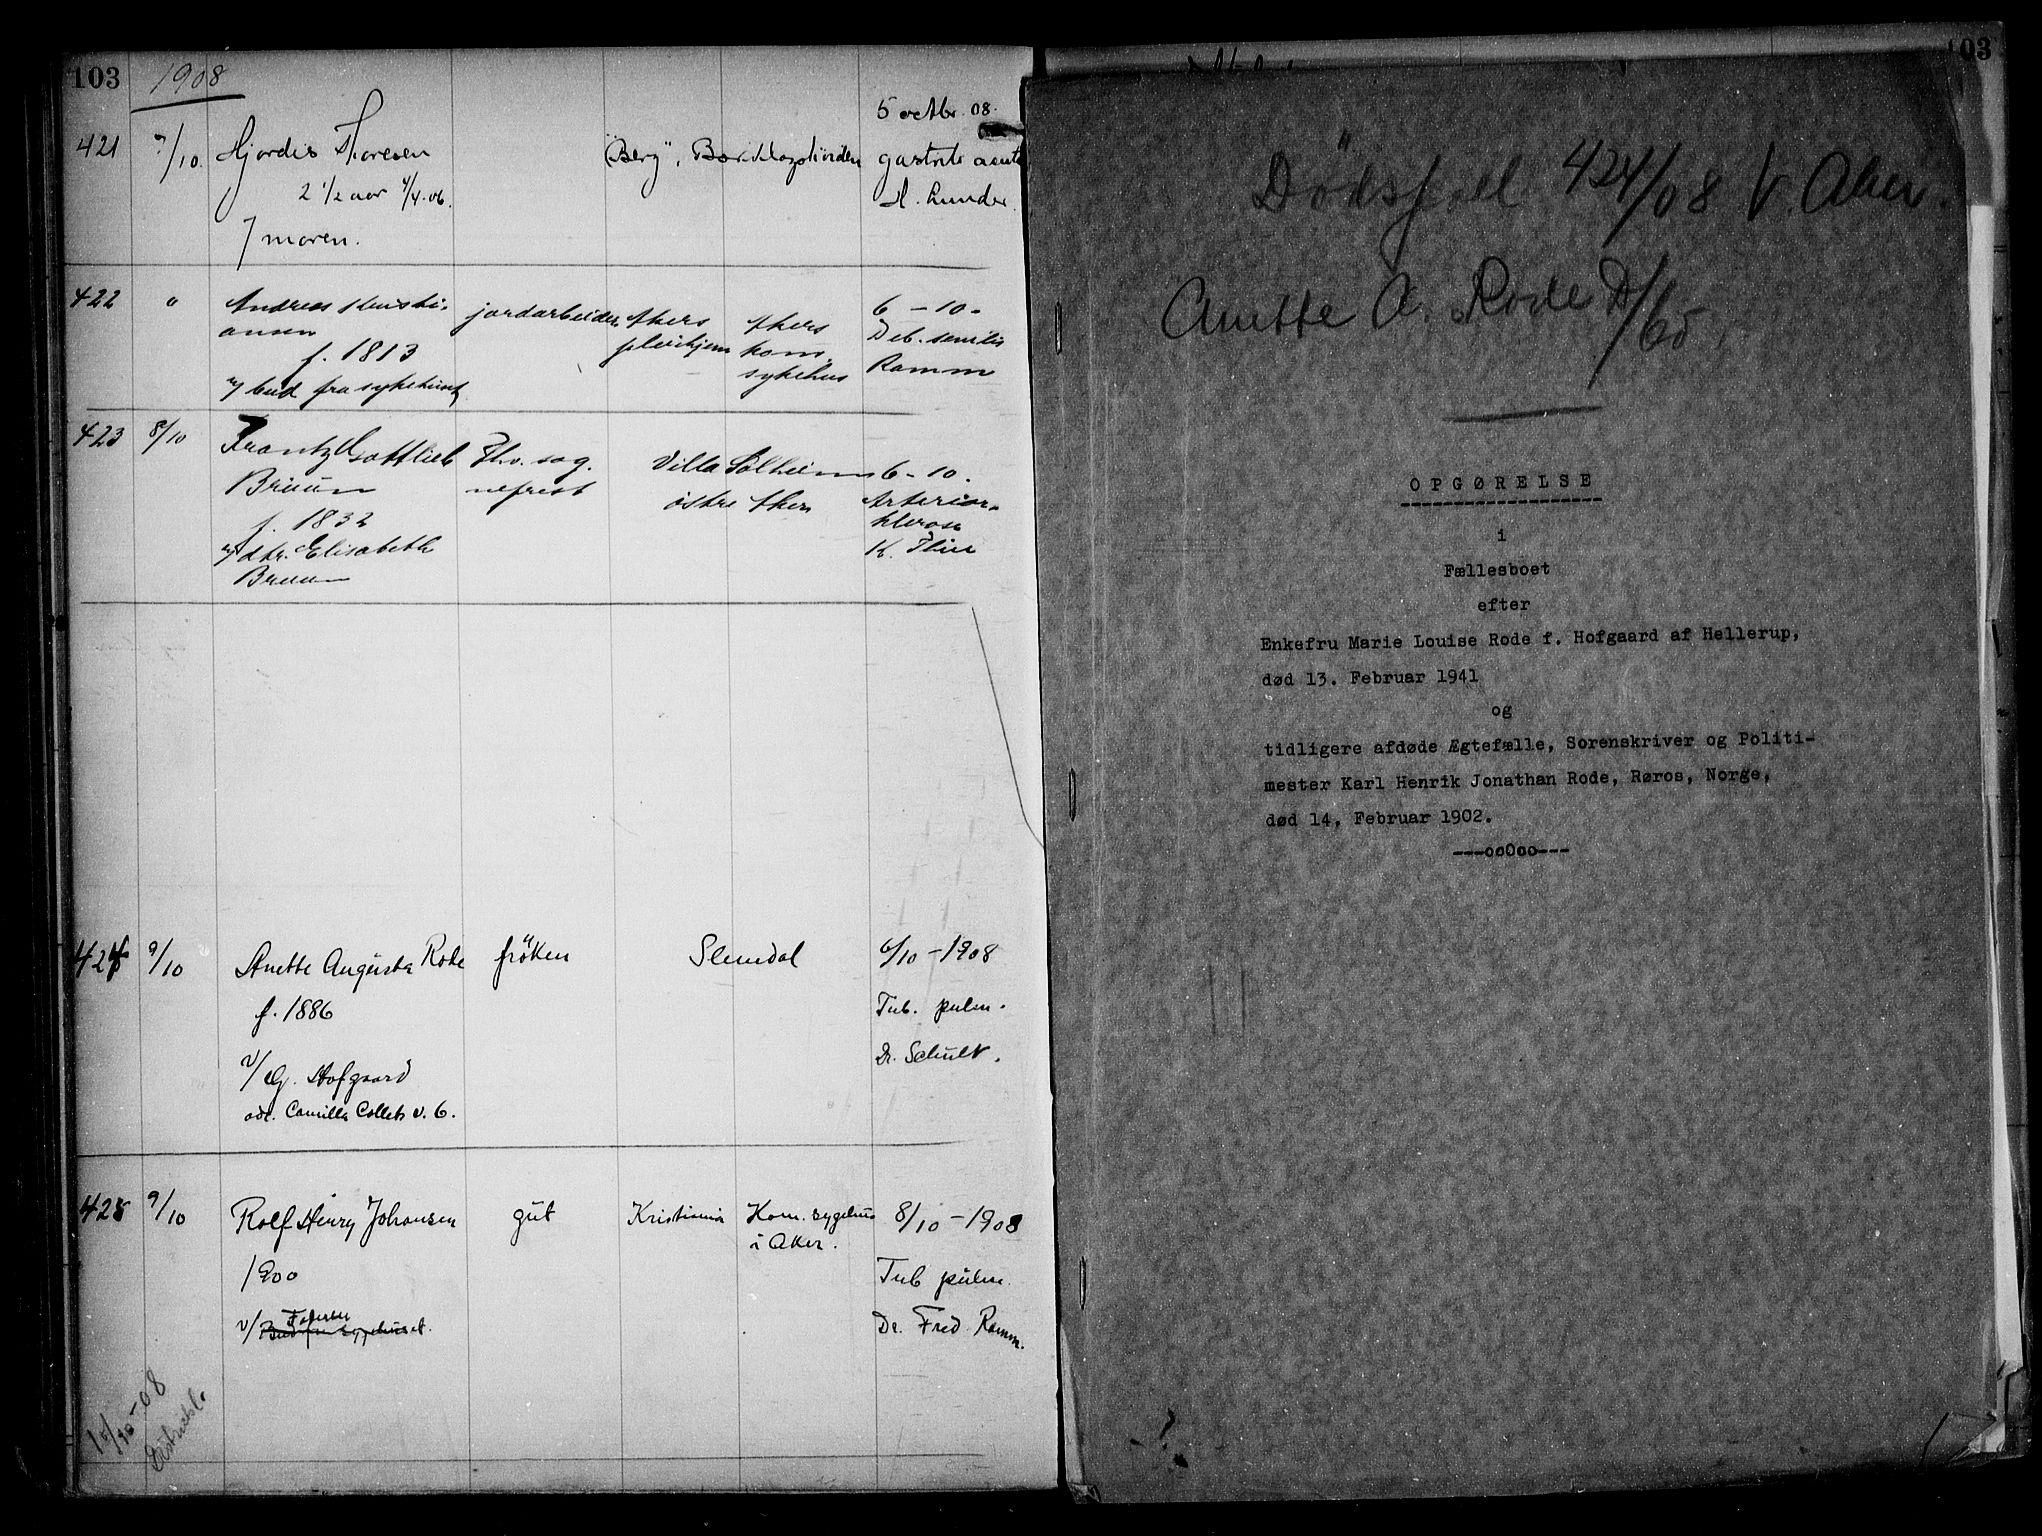 103
1908
5 octbr. 08.
421 7/10. Hjordis Thoresen "Berg", gastrit acut
2 1/2 aar 4/4-06. A. Lunder.
/ moren.
422 " Andreas Kristi- jordarbeider Akers Akers 6 - 10 -
ansen pleiehjem kom. Deb. senilis
f. 1813 sykehus Ramm
v/ bud fra sykehuset
423 8/10 Frantz Gottlieb Fhv. sag. Villa Solheim 6 - 10.
Bruun østre Aker Arterior-
f. 1832 klerose
v/ dtr. Elisabeth K. Thue
Bruun
424 9/10 Anette Augusta Rode frøken Slemdal 6/10 - 1908
f. 1886 Tub. pulm.
v/ G. Hofgaard Dr. Schult.
adr. Camilla Collets v. 6.
425 9/10 Rolf Henry Johansen gut Kristiania Kom. sygehus 8/10 - 1908
i Aker.
1900 Tub pulm.
v/ Faderen
Bud fra sygehuset. Dr. Fred Ramm.
10/10-08
03
Dødsfall 424/08 V. Aker.
Anette A. Rode D/65
OPGØRELSE
i
Fællesboet
efter
Enkefru Marie Louise Rode f. Hofgaard af Hellerup,
død 13. Februar 1941
og
tidligere afdøde Ægtefælle, Sorenskriver og Politi-
mester Karl Henrik Jonathan Rode, Røros, Norge,
død 14. Februar 1902.
---ooOoo---